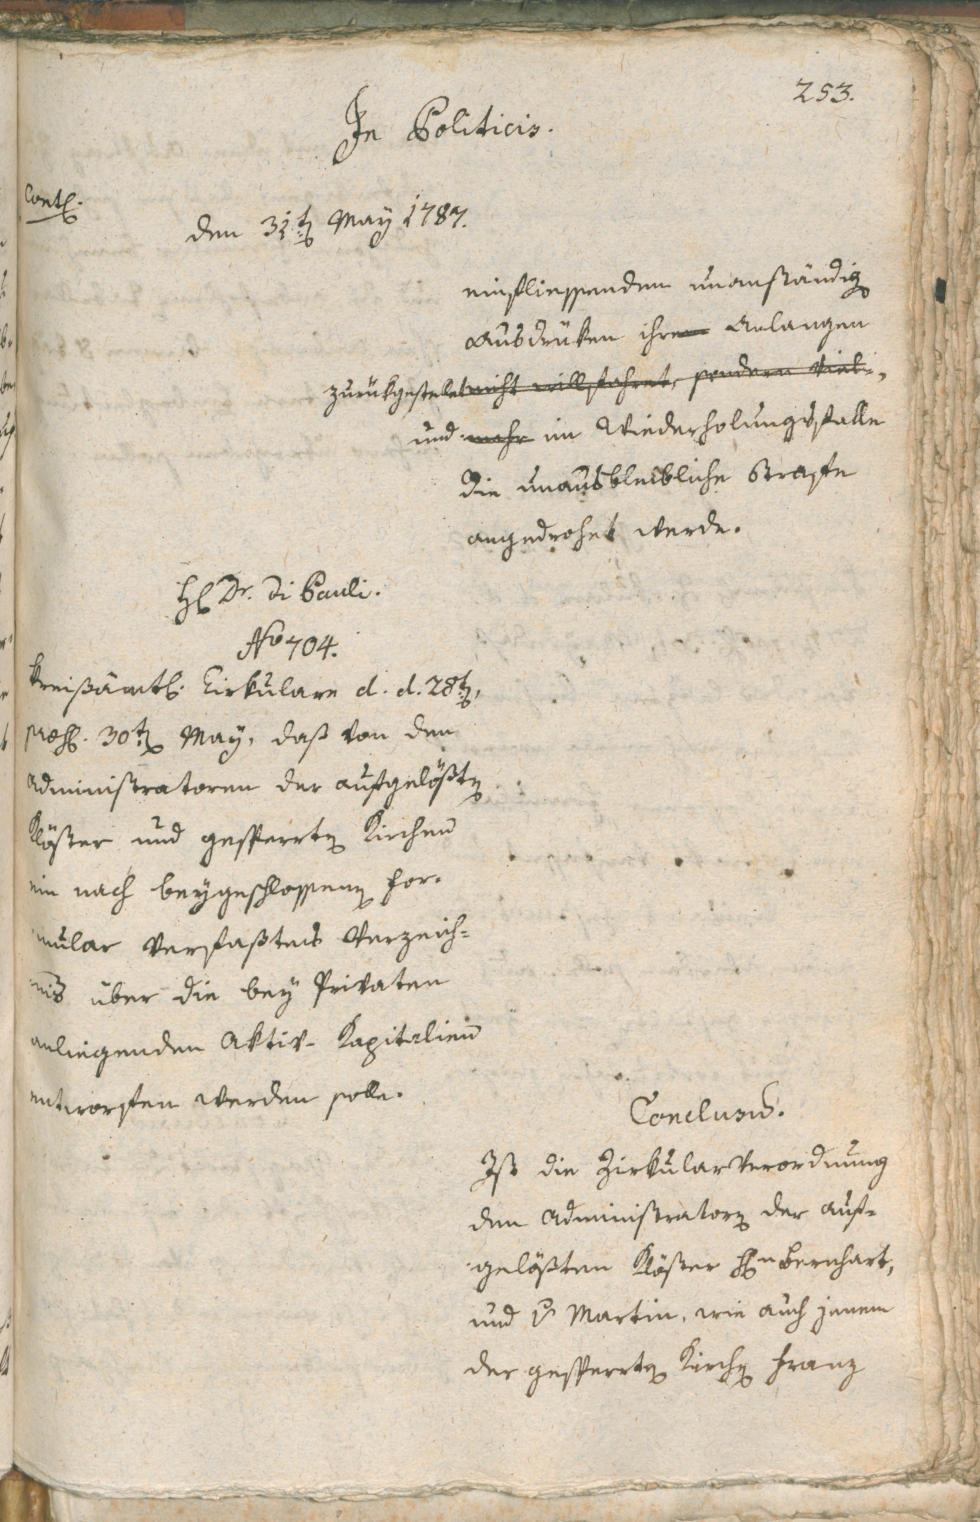 253.
In Politicis.
Contl.
den 31t May 1787.
einfliessenden unanständig
Ausdrüken ihre Anlangen
zurükgestelet nicht willfahret, sondern viel-
und mehr im Wiederholungsfalle
die unausbleibliche Straffe
angedrohet werde.
H Dr. Di Pauli.
No 704.
Kreißämtl. Cirkulare d. d. 28t,
præs. 30t May, daß von den
Administratoren der aufgelößten
Klöster und gesperrten Kirchen
ein nach beygeschlossenen For-
mular verfaßtes Verzeich-
niß über die bey Privaten
anliegenden Aktiv-Kapitalien
entworfen werden solle.
Conclusum.
Ist die Zirkularverordnung
den Administratorn der auf-
gelößten Klöster Hn Bernhart,
und v Martin, wie auch jenem
der gesperrten Kirchen Franz